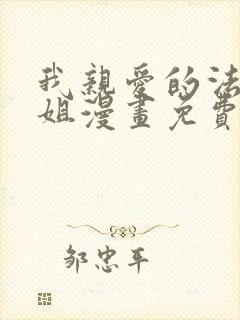 我親愛的法
姐漫畫免費
鄒忠平